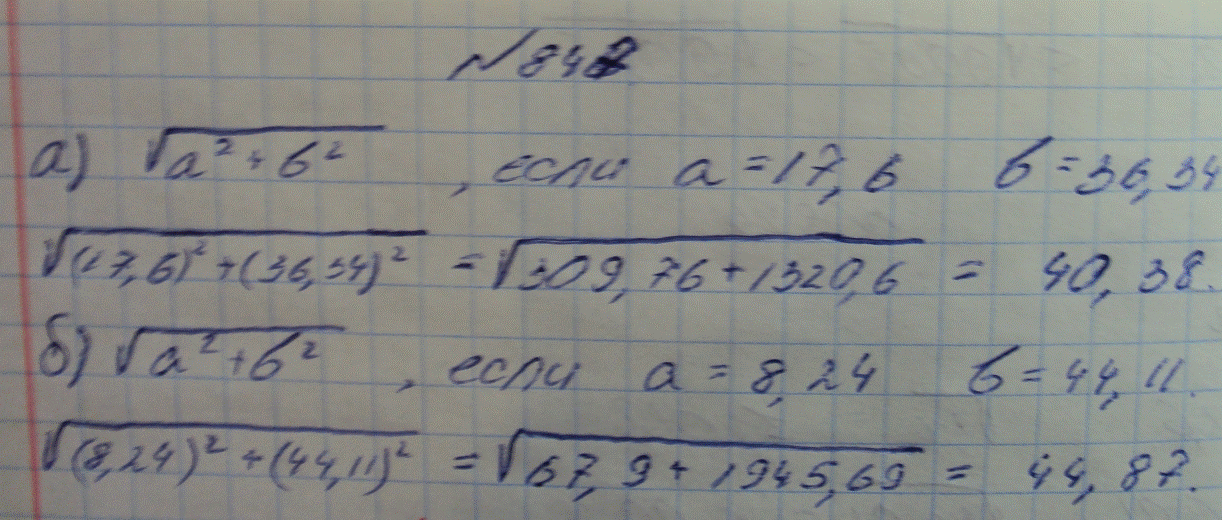 №842
а) √a² + b² , если a = 17,6 b = 36,34
√(17,6)² + (36,34)² = √309,76 + 1320,6 = 40,38.
б) √a² + b² , если a = 8,24 b = 44,11.
√(8,24)² + (44,11)² = √67,9 + 1945,69 = 44,87.